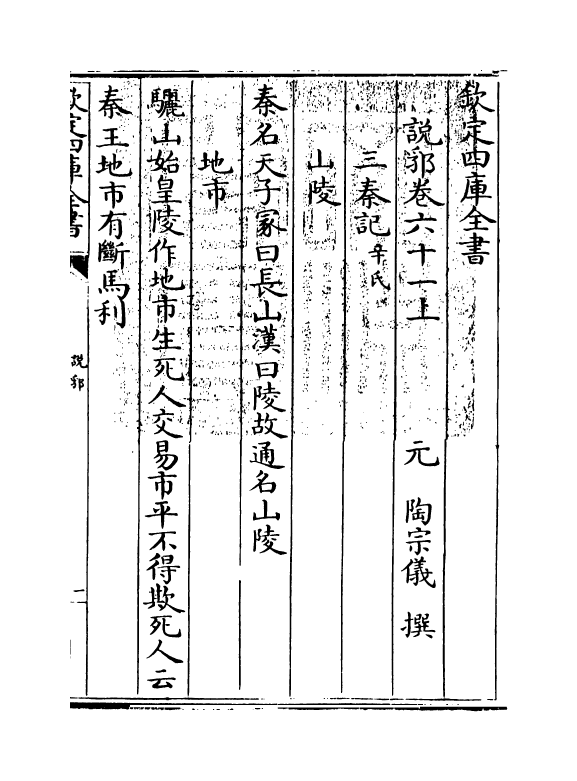 欽定四庫全書
說郛卷六十一上 元 陶宗儀 撰
三秦記 辛氏
山陵
秦名天子冢曰長山漢曰陵故通名山陵
地市
驪山始皇陵作地市生死人交易市平不得欺死人云
秦王地市有斷馬利
欽定四庫全書
說郛
二